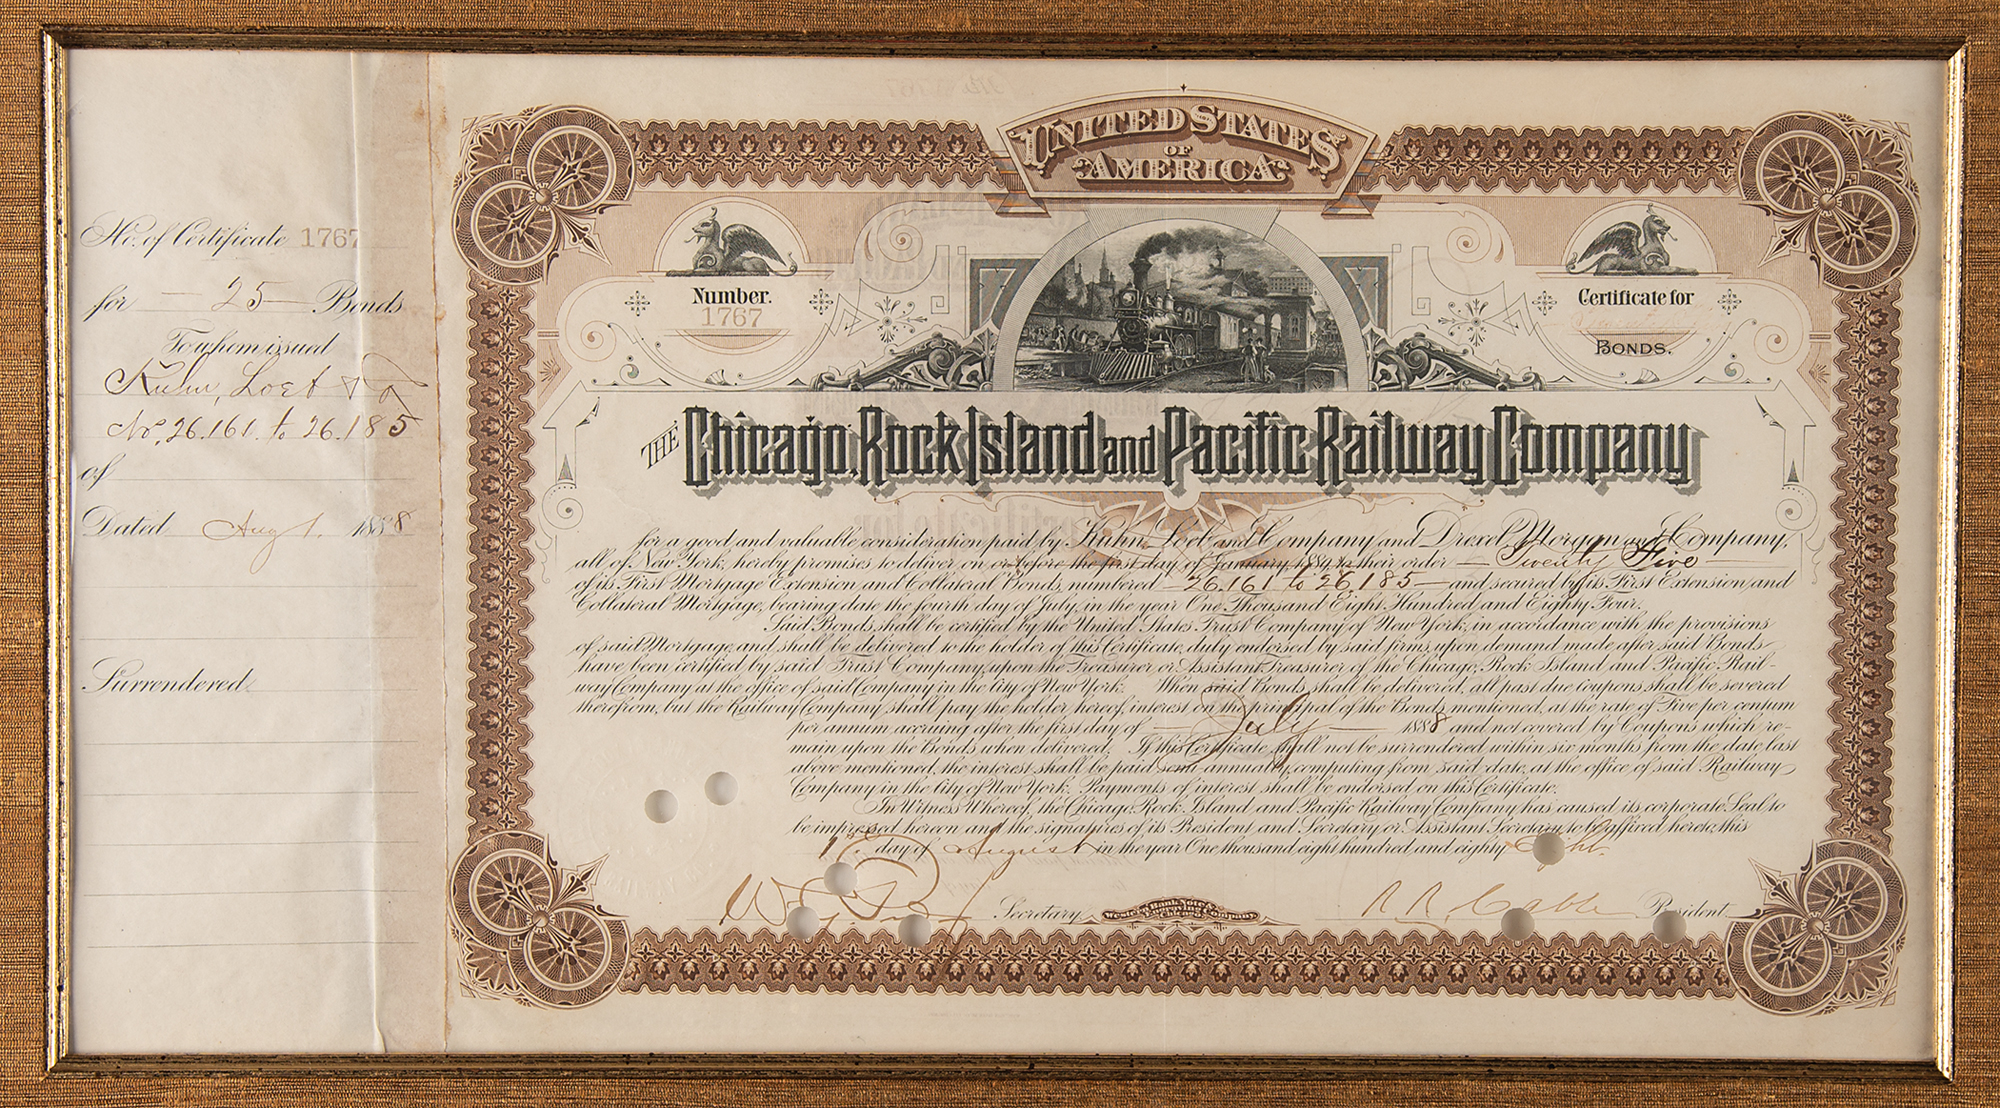 No. of Certificate 1767
for — 25 — Bonds
To whom issued
Kuhn, Loeb & Co
No. 26.161. to 26.185
of
Dated Aug 1. 1888
Surrendered
UNITED STATES
OF
AMERICA
Number.
1767
Certificate for
BONDS.
THE Chicago, Rock Island and Pacific Railway Company
for a good and valuable consideration paid by Kuhn, Loeb and Company and Drexel, Morgan and Company,
all of New York, hereby promises to deliver on or before the first day of January to their order — Twenty Five —
of its First Mortgage Extension and Collateral Bonds, numbered 26.161 to 26.185 — and secured by its First Extension and
Collateral Mortgage, bearing date the fourth day of July, in the year One Thousand Eight Hundred and Eighty Four.
Said Bonds shall be certified by the United States Trust Company of New York, in accordance with the provisions
of said Mortgage, and shall be delivered to the holder of this Certificate, duly endorsed by said firms, upon demand made after said Bonds
have been certified by said Trust Company, upon the Treasurer or Assistant Treasurer of the Chicago, Rock Island and Pacific Rail-
way Company at the office of said Company in the City of New York. When said Bonds shall be delivered, all past due coupons shall be severed
therefrom, but the Railway Company shall pay the holder hereof, interest on the principal of the Bonds mentioned, at the rate of Five per centum
per annum accruing after the first day of — July — 1888 and not covered by Coupons which re-
main upon the Bonds when delivered. If this Certificate shall not be surrendered within six months from the date last
above mentioned, the interest shall be paid semi-annually, computing from said date, at the office of said Railway
Company in the City of New York. Payments of interest shall be endorsed on this Certificate.
In Witness Whereof, the Chicago, Rock Island and Pacific Railway Company has caused its corporate Seal to
be impressed hereon and the signatures of its President and Secretary or Assistant Secretary to be affixed hereto, this
1st day of August in the year One thousand eight hundred and eighty eight.
Secretary.
Western Bank Note & Engraving Company, Chicago
R. R. Cable President